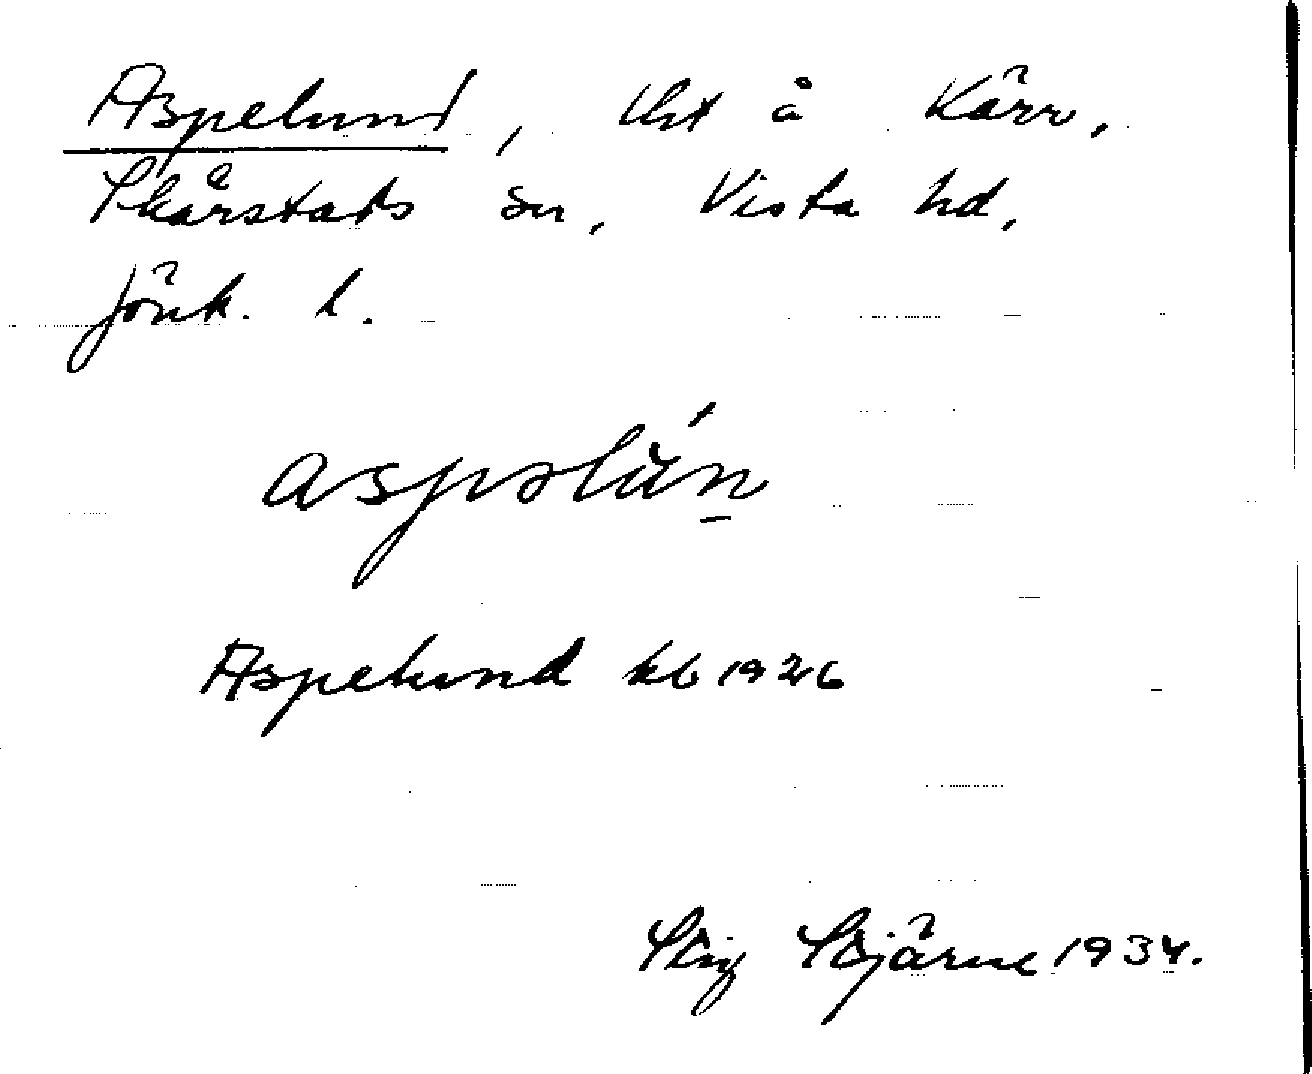 Aspelund, lht å Kärr,
Skärstads sn, Vista hd,
Jönk. l.
aspəlún
Aspelund kb 1926
Stig Stjärne 1934.